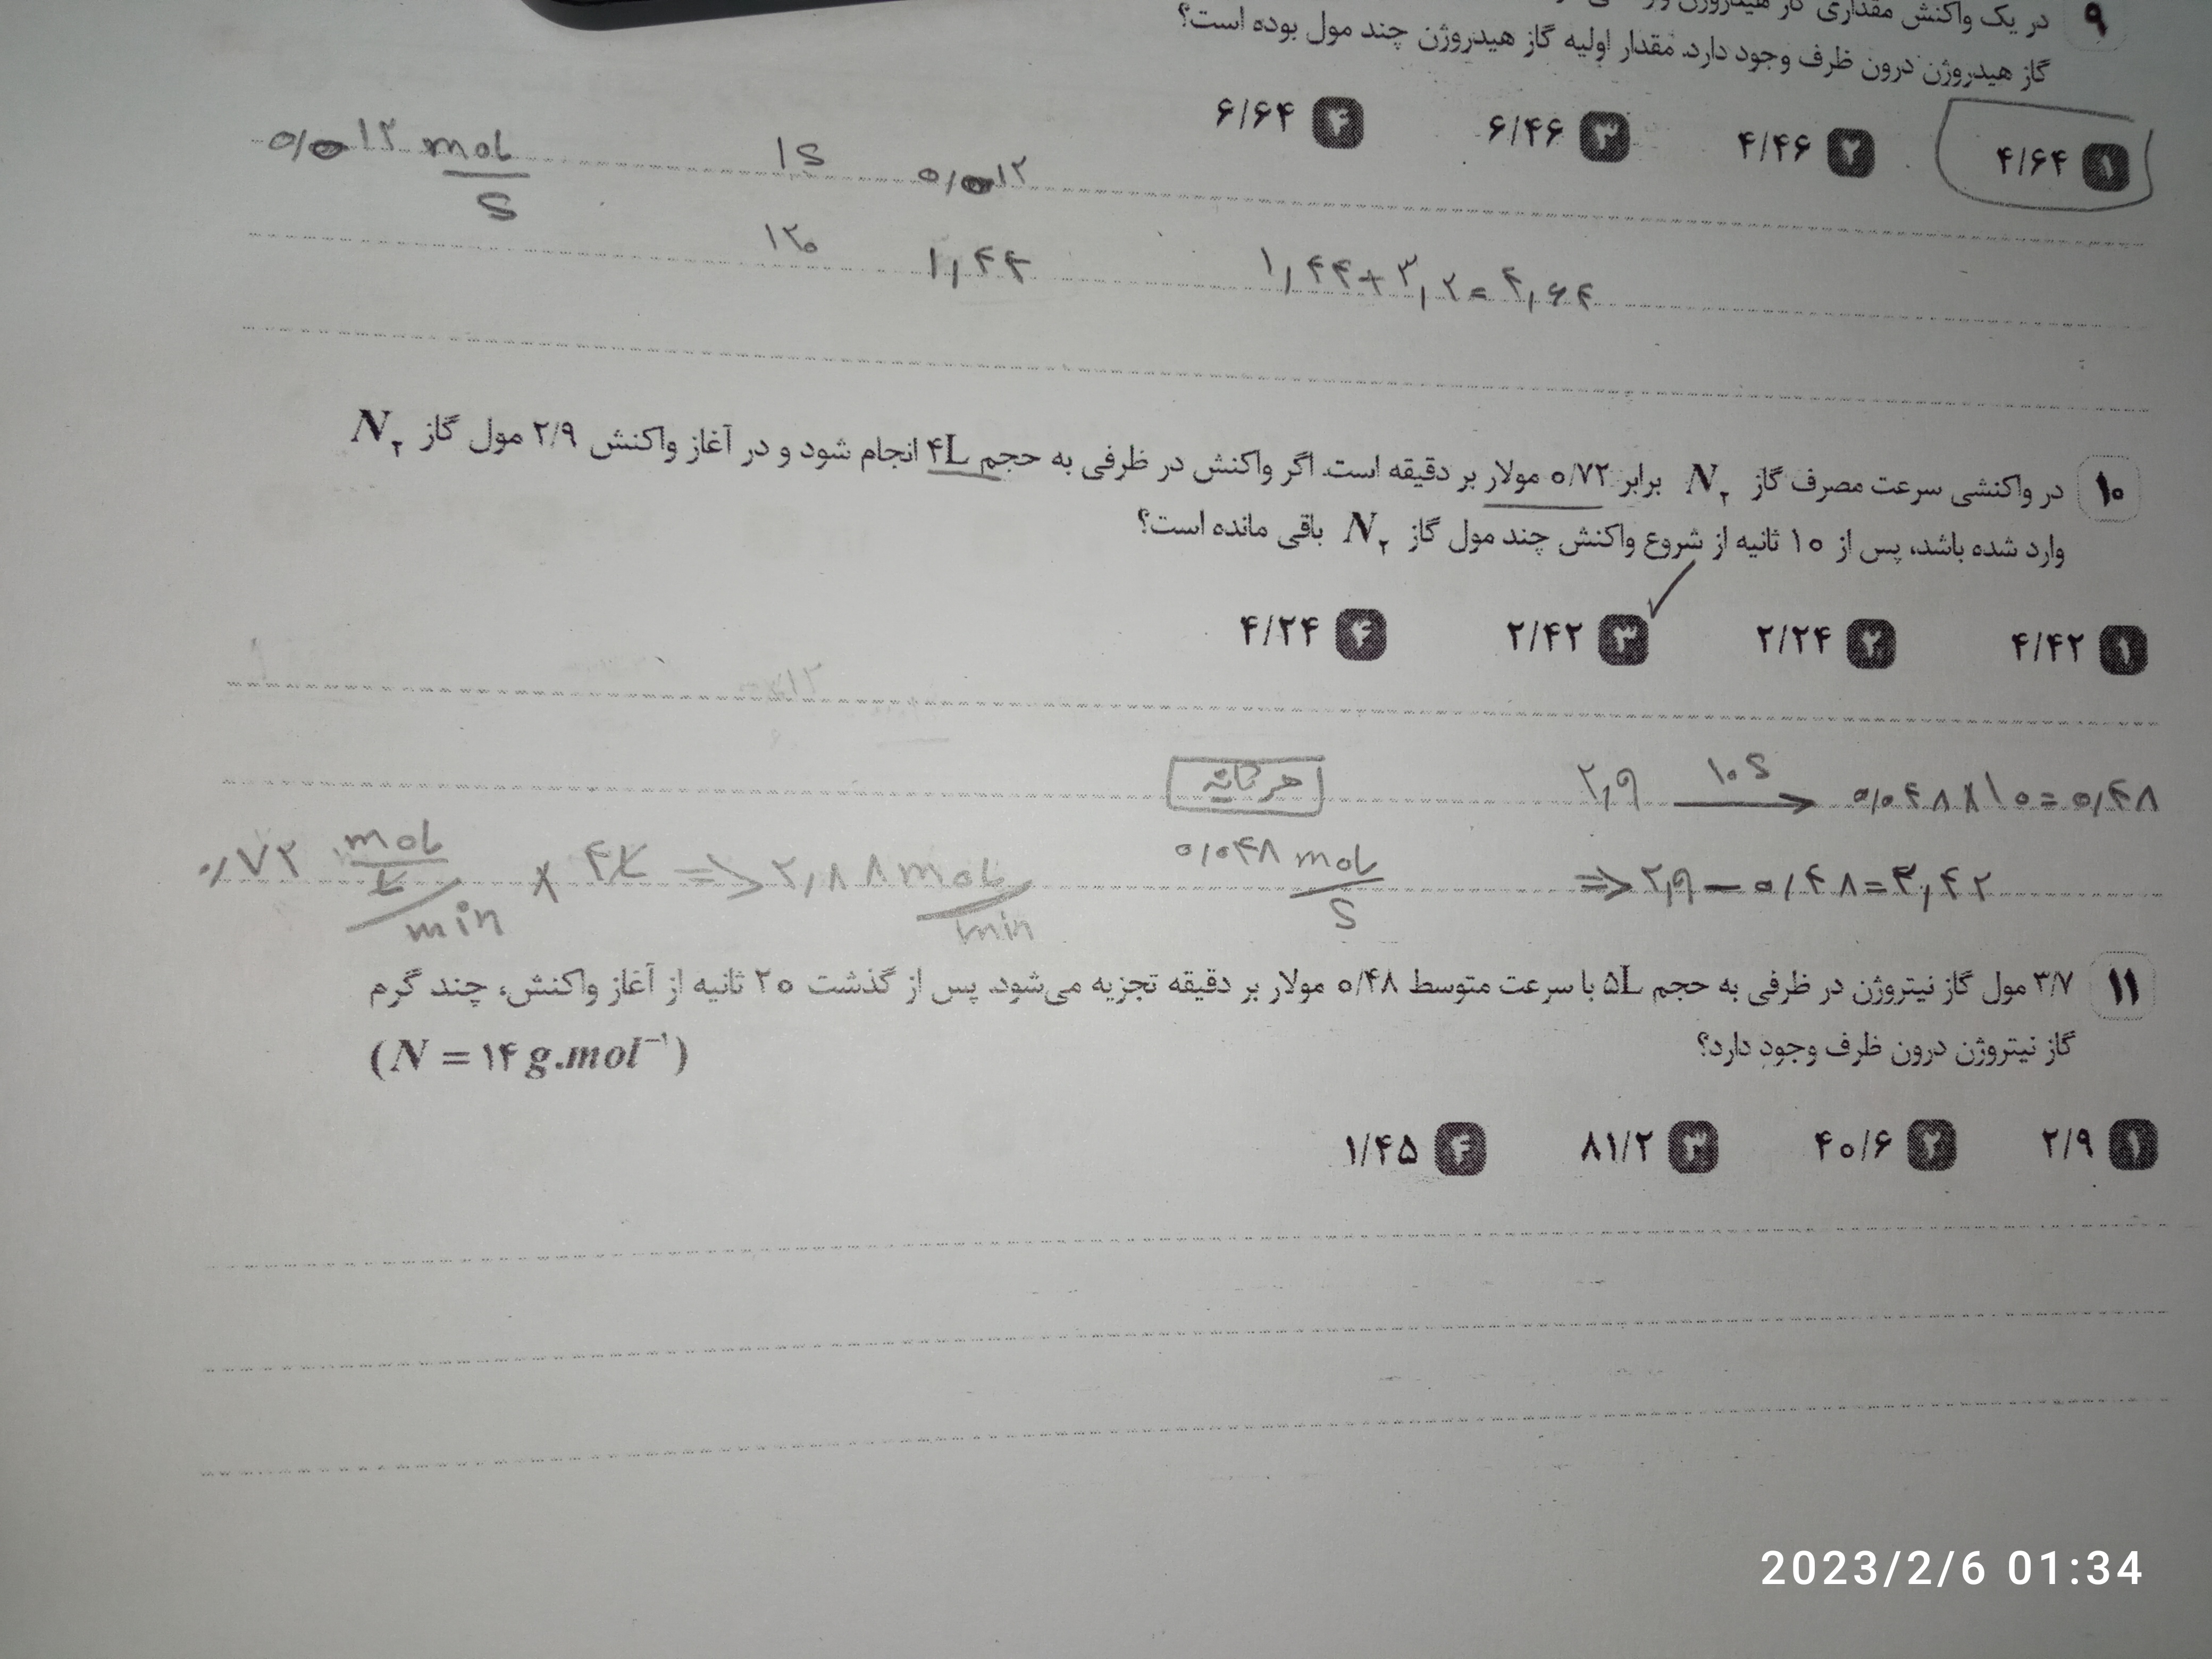 ۹ در یک واکنش مقداری گاز هیدروژن
گاز هیدروژن درون ظرف وجود دارد. مقدار اولیه گاز هیدروژن چند مول بوده است؟
۱ ۴/۶۴ ۲ ۴/۴۶ ۳ ۶/۴۶ ۴ ۶/۶۴
۰/۰۱۲ mol/s 1s ۰/۰۱۲
۱۲۰ ۱,۴۴ ۱,۴۴+۳,۲=۴,۶۴
۱۰ در واکنشی سرعت مصرف گاز N۲ برابر ۰/۷۲ مولار بر دقیقه است. اگر واکنش در ظرفی به حجم ۴L انجام شود و در آغاز واکنش ۲/۹ مول گاز N۲
وارد شده باشد، پس از ۱۰ ثانیه از شروع واکنش چند مول گاز N۲ باقی مانده است؟
۱ ۴/۴۲ ۲ ۲/۲۴ ۳ ۲/۴۲ ۴ ۴/۲۴
هر ثانیه ۲,۹ ۱۰s → ۰/۰۴۸×۱۰=۰/۴۸
۰/۷۲ mol/L/min × ۴L => ۲,۸۸ mol/min ۰/۰۴۸ mol/s => ۲,۹-۰/۴۸=۲,۴۲
۱۱ ۳/۷ مول گاز نیتروژن در ظرفی به حجم ۵L با سرعت متوسط ۰/۴۸ مولار بر دقیقه تجزیه می‌شود. پس از گذشت ۲۰ ثانیه از آغاز واکنش، چند گرم
گاز نیتروژن درون ظرف وجود دارد؟ (N = ۱۴ g.mol⁻¹)
۱ ۲/۹ ۲ ۴۰/۶ ۳ ۸۱/۲ ۴ ۱/۴۵
2023/2/6 01:34